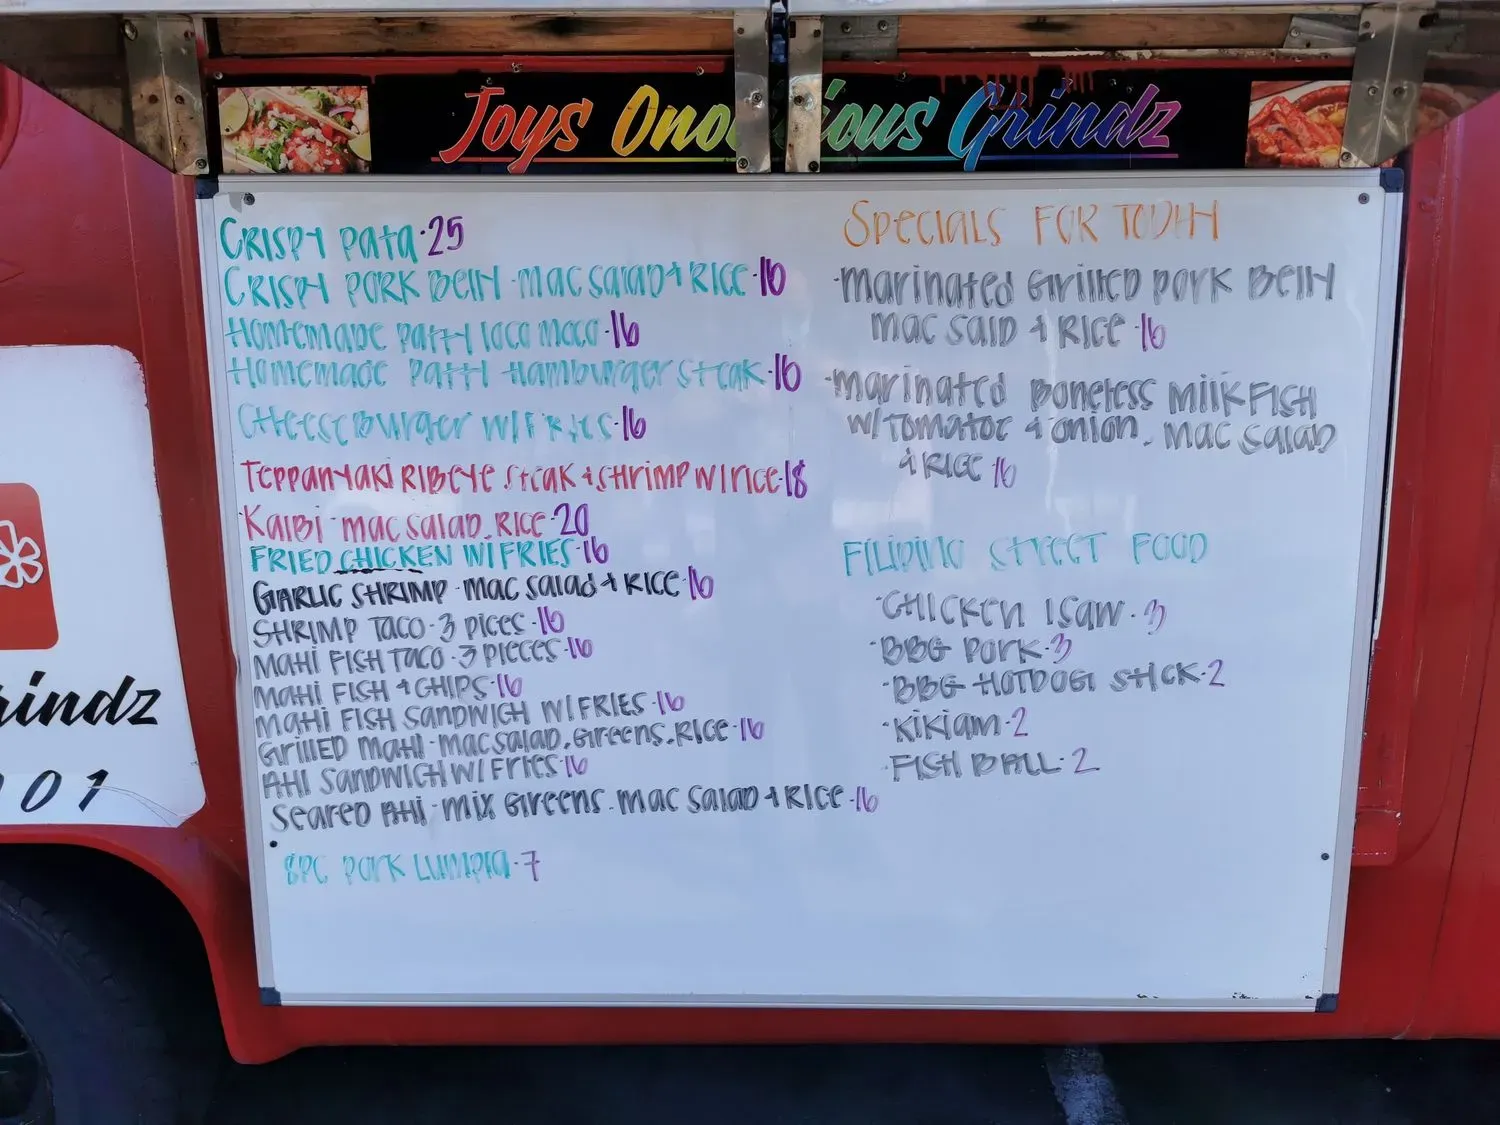 Joys Ono ious Grindz
CRISPY PATA · 25
CRISPY PORK BELLY - MAC SALAD + RICE · 16
HOMEMADE PATTY LOCO MOCO · 16
HOMEMADE PATTY HAMBURGER STEAK · 16
CHEESE BURGER W/ FRIES · 16
TEPPANYAKI RIBEYE STEAK + SHRIMP W/ RICE · 18
KALBI - MAC SALAD, RICE · 20
FRIED CHICKEN W/ FRIES · 16
GARLIC SHRIMP - MAC SALAD + RICE · 16
SHRIMP TACO - 3 PICES · 16
MAHI FISH TACO · 3 PIECES · 16
MAHI FISH + CHIPS · 16
MAHI FISH SANDWICH W/ FRIES · 16
GRILLED MAHI - MAC SALAD, GREENS, RICE · 16
AHI SANDWICH W/ FRIES · 16
SEARED AHI - MIX GREENS, MAC SALAD + RICE · 16
8PC PORK LUMPIA · 7
SPECIALS FOR TODAY
· MARINATED GRILLED PORK BELLY
MAC SALD + RICE · 16
· MARINATED BONELESS MILKFISH
W/ TOMATOE + ONION, MAC SALAD
+ RICE 16
FILIPINO STREET FOOD
· CHICKEN ISAW · 3
· BBG PORK · 3
· BBG HOTDOG STICK · 2
· KIKIAM · 2
· FISH BALL · 2
rindz
01